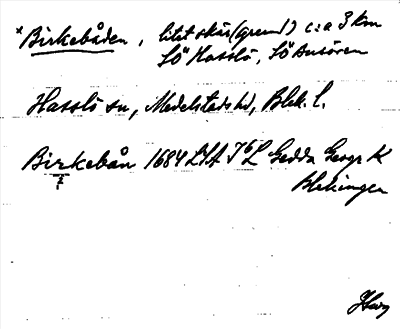 *Birkebåden, litet skär (grund) c:a 3 km
SÖ Hasslö, SÖ Ansören
Hasslö sn, Medelstads hd, Blek. l.
Birkebån 1684 LSA Gedda Geogr K
?
Blekingen